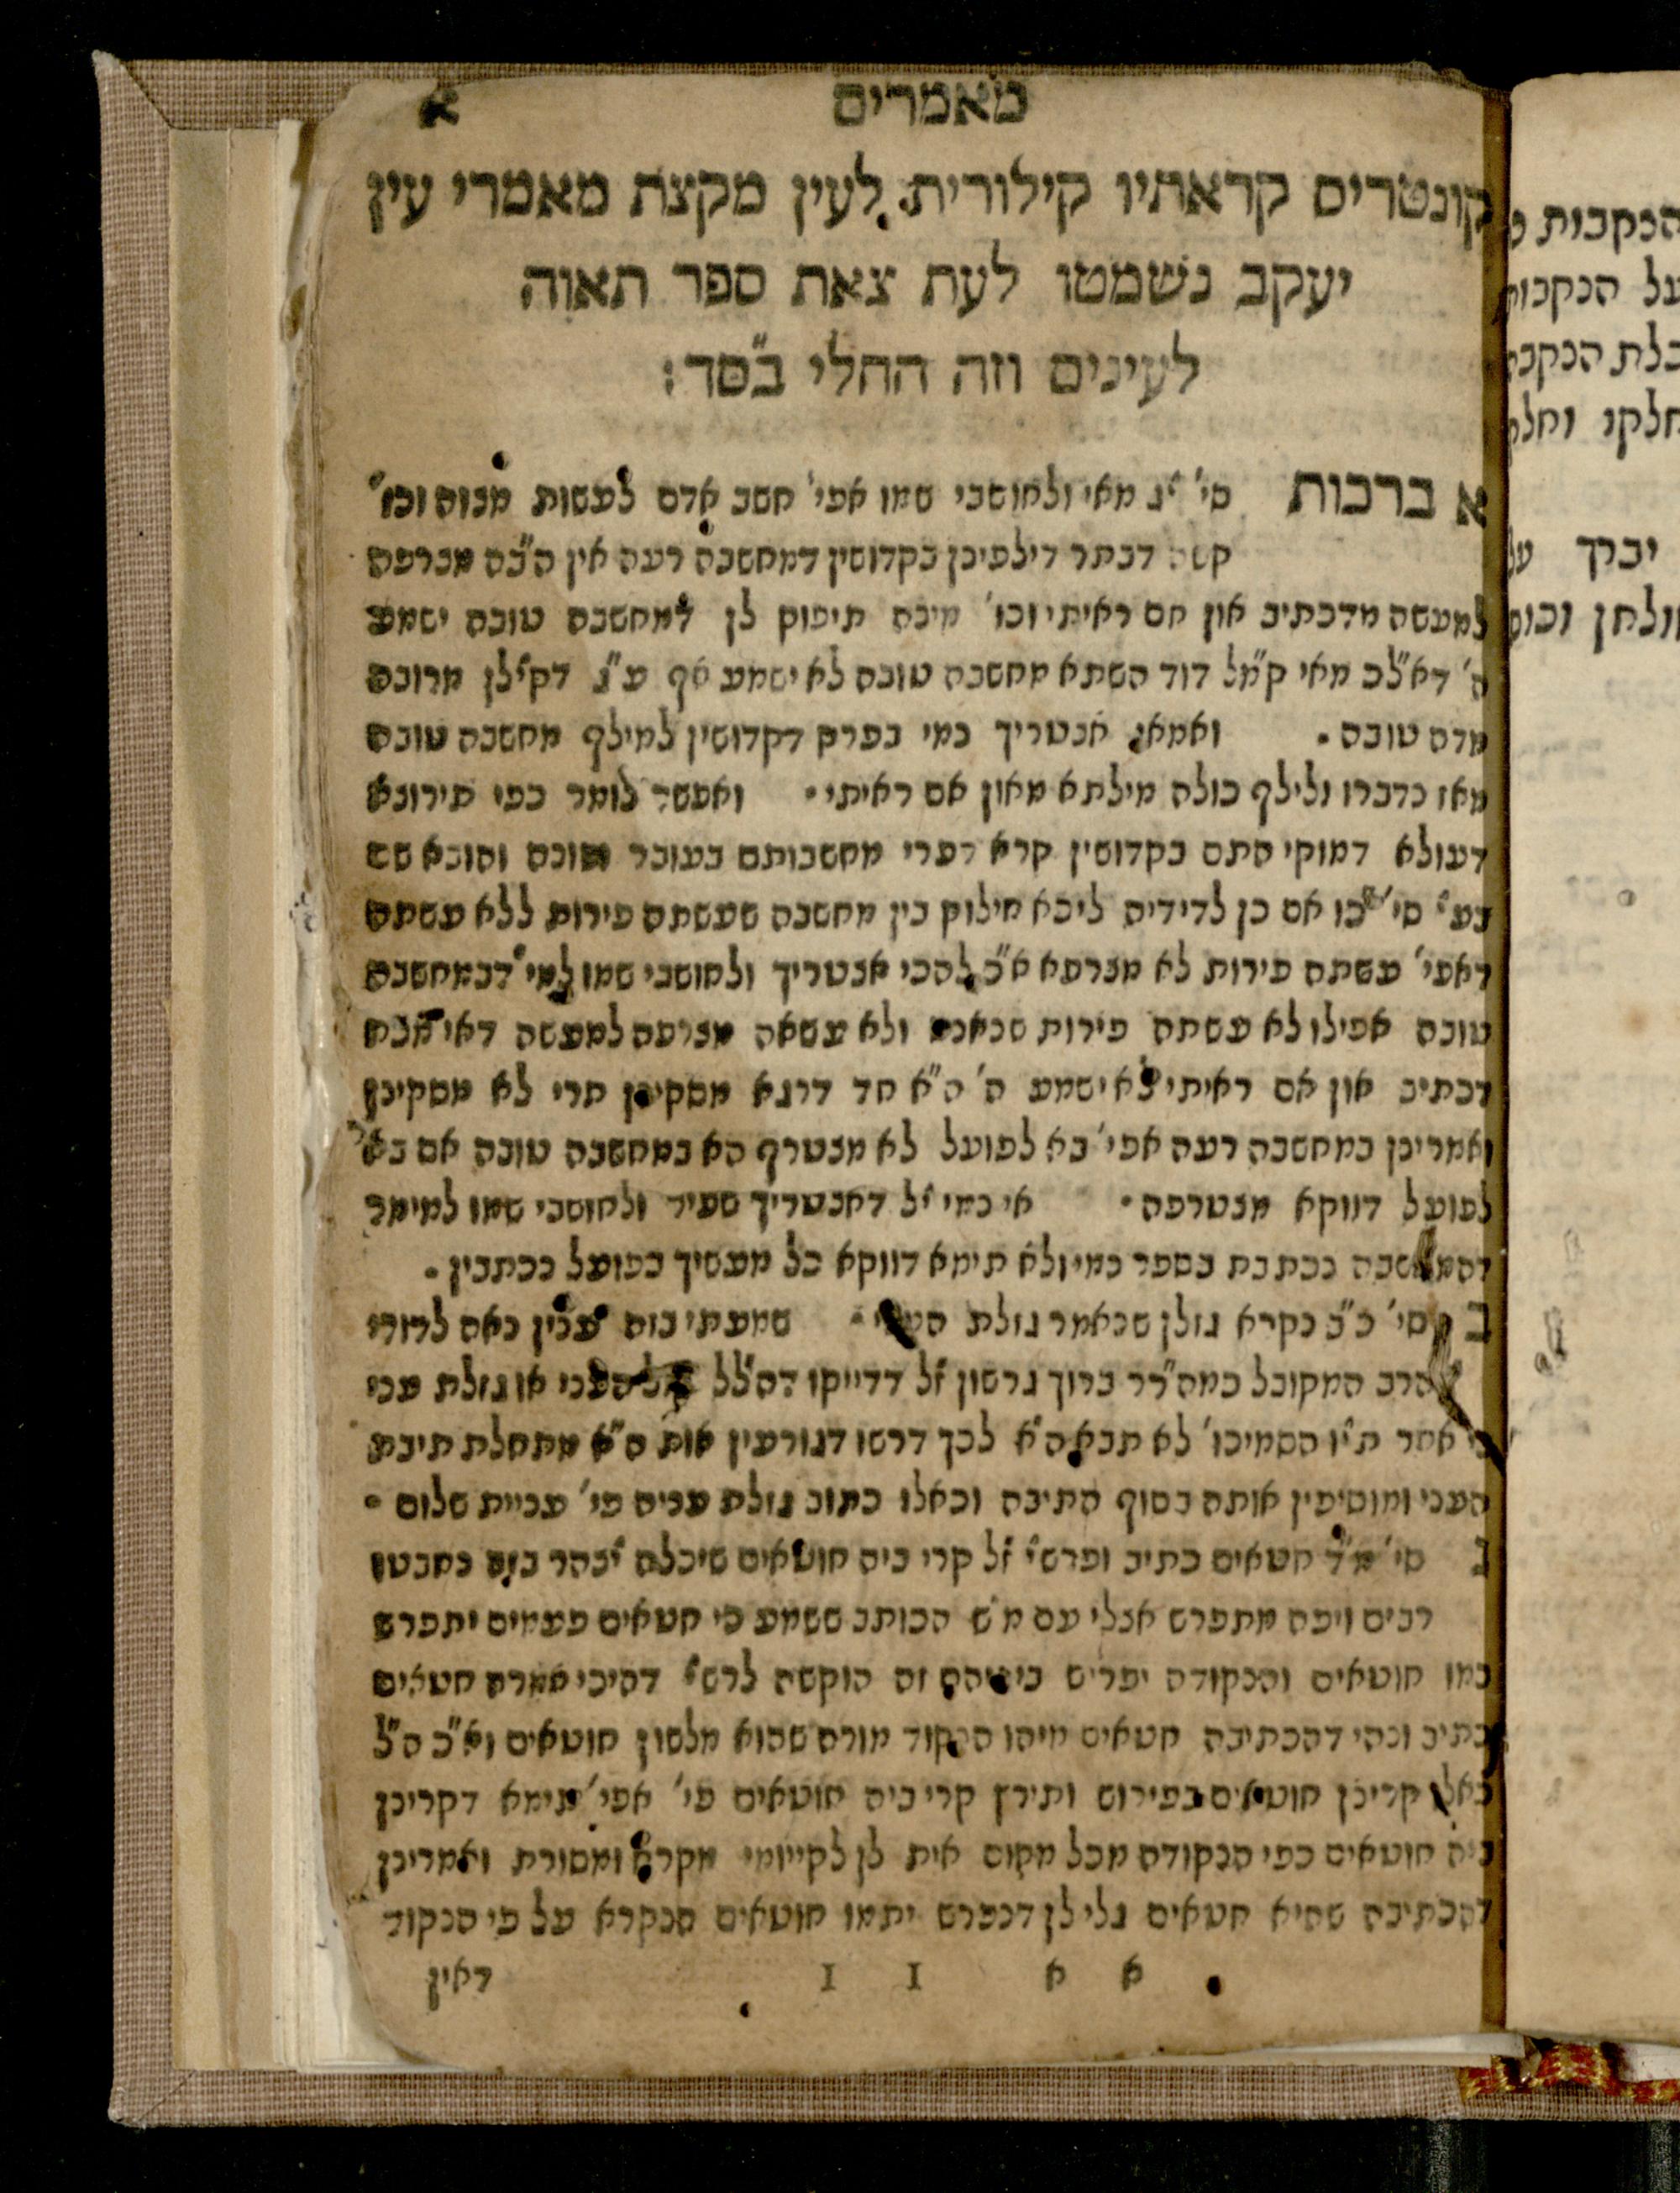 מאמרים א
קונטרים קראתיו קילורית לעין מקצת מאמרי עין
יעקב נשמטו לעת צאת ספר תאוה
לעינים וזה החלי ב"סד:
א ברכות סי' י"ג מאי ולחושבי שמו אפי' חשב אדם לעשות מצוה וכו'
קשה דבתר דילפינן בקדושין דמחשבה רעה אין ה"בה מצרפה
למעשה מדכתיב און אם ראיתי וכו' מינה תיפוק לן דמחשבה טובה ישמע
ה' דא"לכ מאי ק"מל דוד השתא מחשבה טובה לא ישמע אף ע"ג דק"ילן מרובה
מדה טובה. ואמאי אצטריך נמי בפרק דקדושין למילף מחשבה טובה
מאז נדברו נלילף כולה מילתא מאון אם ראיתי. ואפשר לומר כפי תירוצא
דעולא דמוקי התם בקדושין קרא דפרי מחשבותם בעובר ושונה והובא שם
בע"י סי' כו אם כן לדידיה ליכא חילוק בין מחשבה שעשתה פירות ללא עשתה
דאפי' עשתה פירות לא מצרפא א"כ להכי אצטריך ולחושבי שמו דבמחשבה
טובה אפילו לא עשתה פירות שנאנס ולא עשאה מצרפה למעשה דאי
דכתיב און אם ראיתי לא ישמע ה' ה"א חד דרגא מסקינן תרי לא מסקינן
ואמרינן במחשבה רעה אפי' בא לפועל לא מצטרף הא במחשבה טובה אם בא
לפועל דווקא מצטרפה. אי נמי י"ל דאצטריך שפיר ולחושבי שמו למימר
דהמחשבה נכתבת בספר נמי ולא תימא דווקא כל מעשיך בפועל נכתבין.
ב סי' כ"ב נקרא גזלן שנאמר גזלת העני. שמעתי בזה ענין נאה לדודי
הרב המקובל כמה"רר ברוך גרשון ז"ל דדייקו דה"לל או גזלת עני
אחר ת"יו הסמיכו' לא תבא ה"א לכך דרשו דגורעין אות ה"א מתחלת תיבת
העני ומוסיפין אותה בסוף התיבה וכאלו כתוב גזלת עניה פי' עניית שלום.
ג סי' מ"ד חטאים כתיב ופרש"י ז"ל קרי ביה חוטאים שיכלה יצהר בזה נתבטו
רבים ויפה מתפרש אצלי עם מ"ש הכותב ששמע כי חטאים פעמים יתפרש
כמו חוטאים והנקודה יפריש ביניהם זה הוקשה לרש"י דהיכי אמרת חטאים
כתיב ונהי דהכתיבה חטאים מיהו הנקוד מורה שהוא מלשון חוטאים וא"כ ה"ל
כאלו קרינן חוטאים בפירוש ותירץ קרי ביה חוטאים פי' אפי' תימא דקרינן
ביה חוטאים כפי הנקודה מכל מקום אית לן לקיימי מקרא ומסורת ואמרינן
דהכתיבה שהיא חטאים גלי לן דנפרש יתמו חוטאים הנקרא על פי הנקוד
א א 1 1 דאין